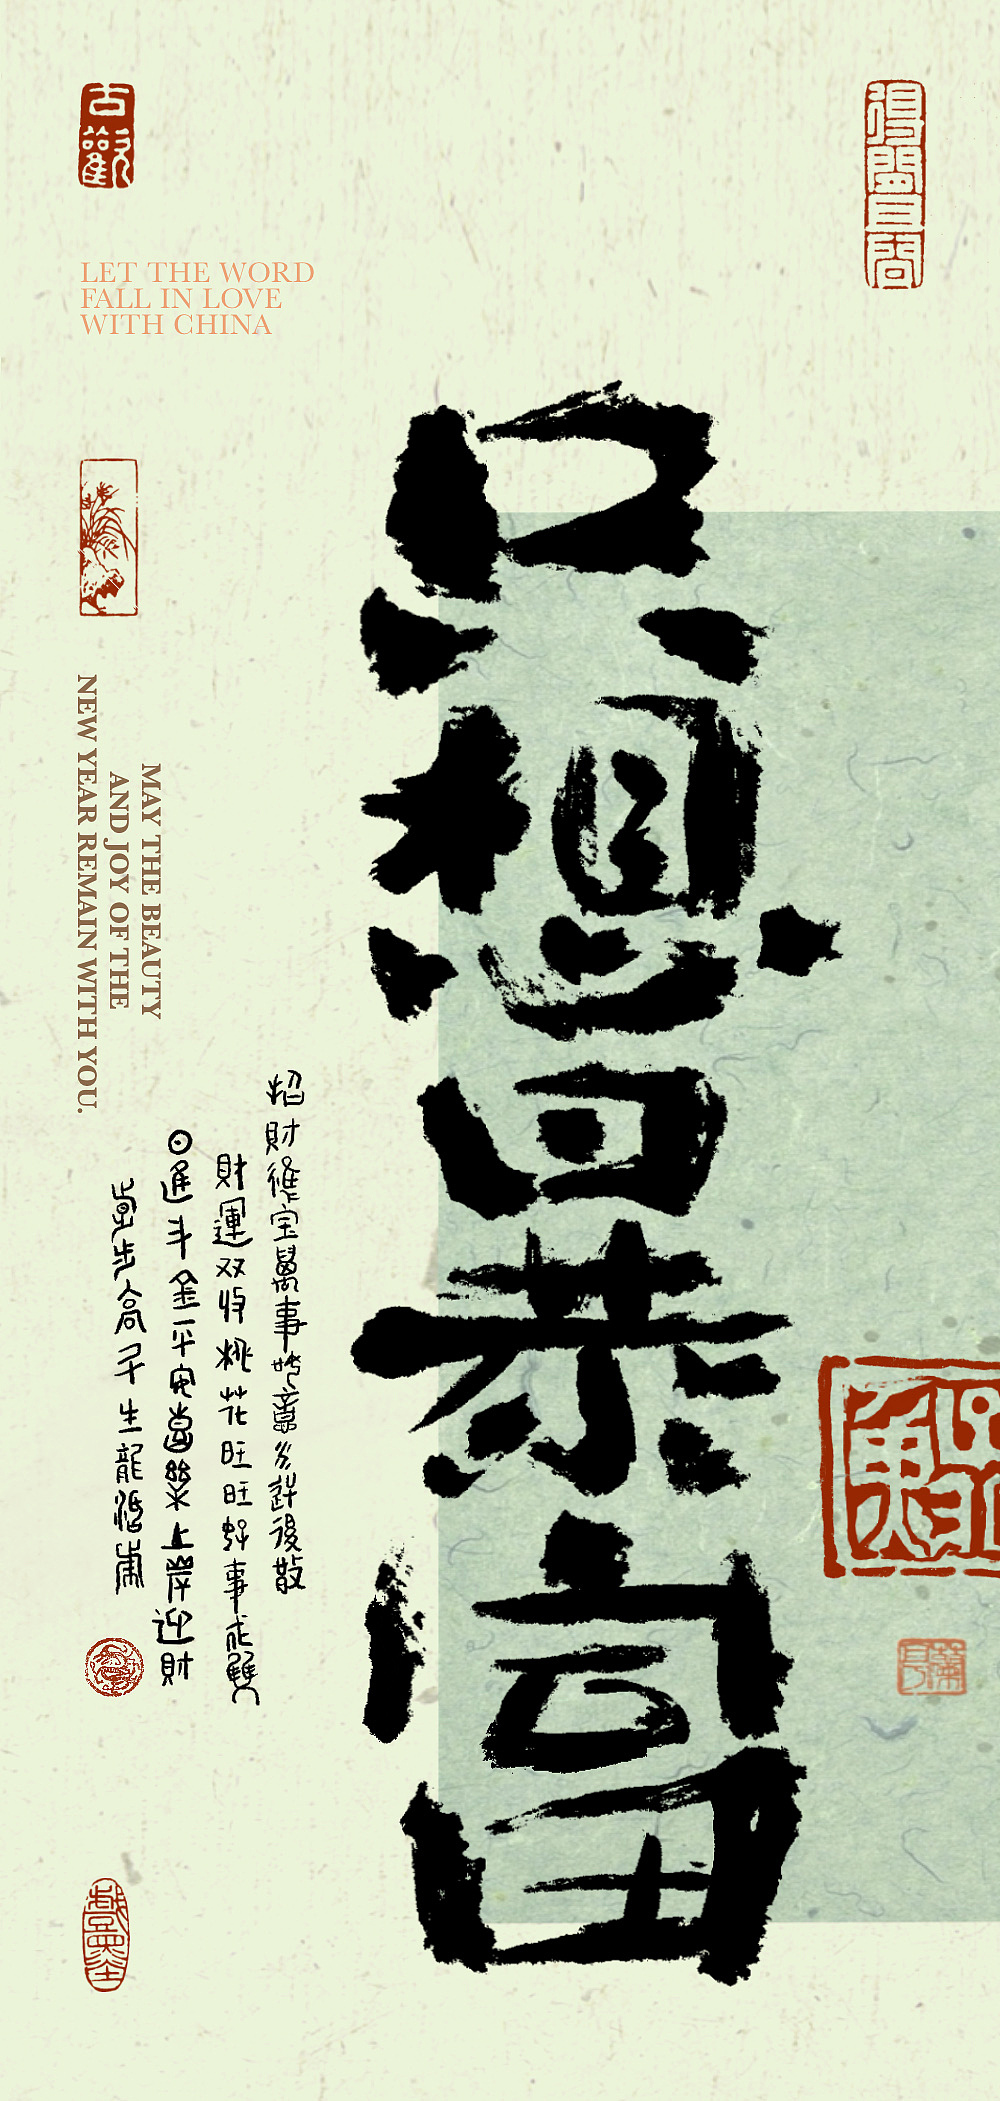 古觀
LET THE WORD
FALL IN LOVE
WITH CHINA
只想暴富
MAY THE BEAUTY
AND JOY OF THE
NEW YEAR REMAIN WITH YOU.
招財進宝萬事如意
財運双收桃花旺旺好事成雙
日進斗金平安喜樂上岸迎財
步步高升生龍活虎